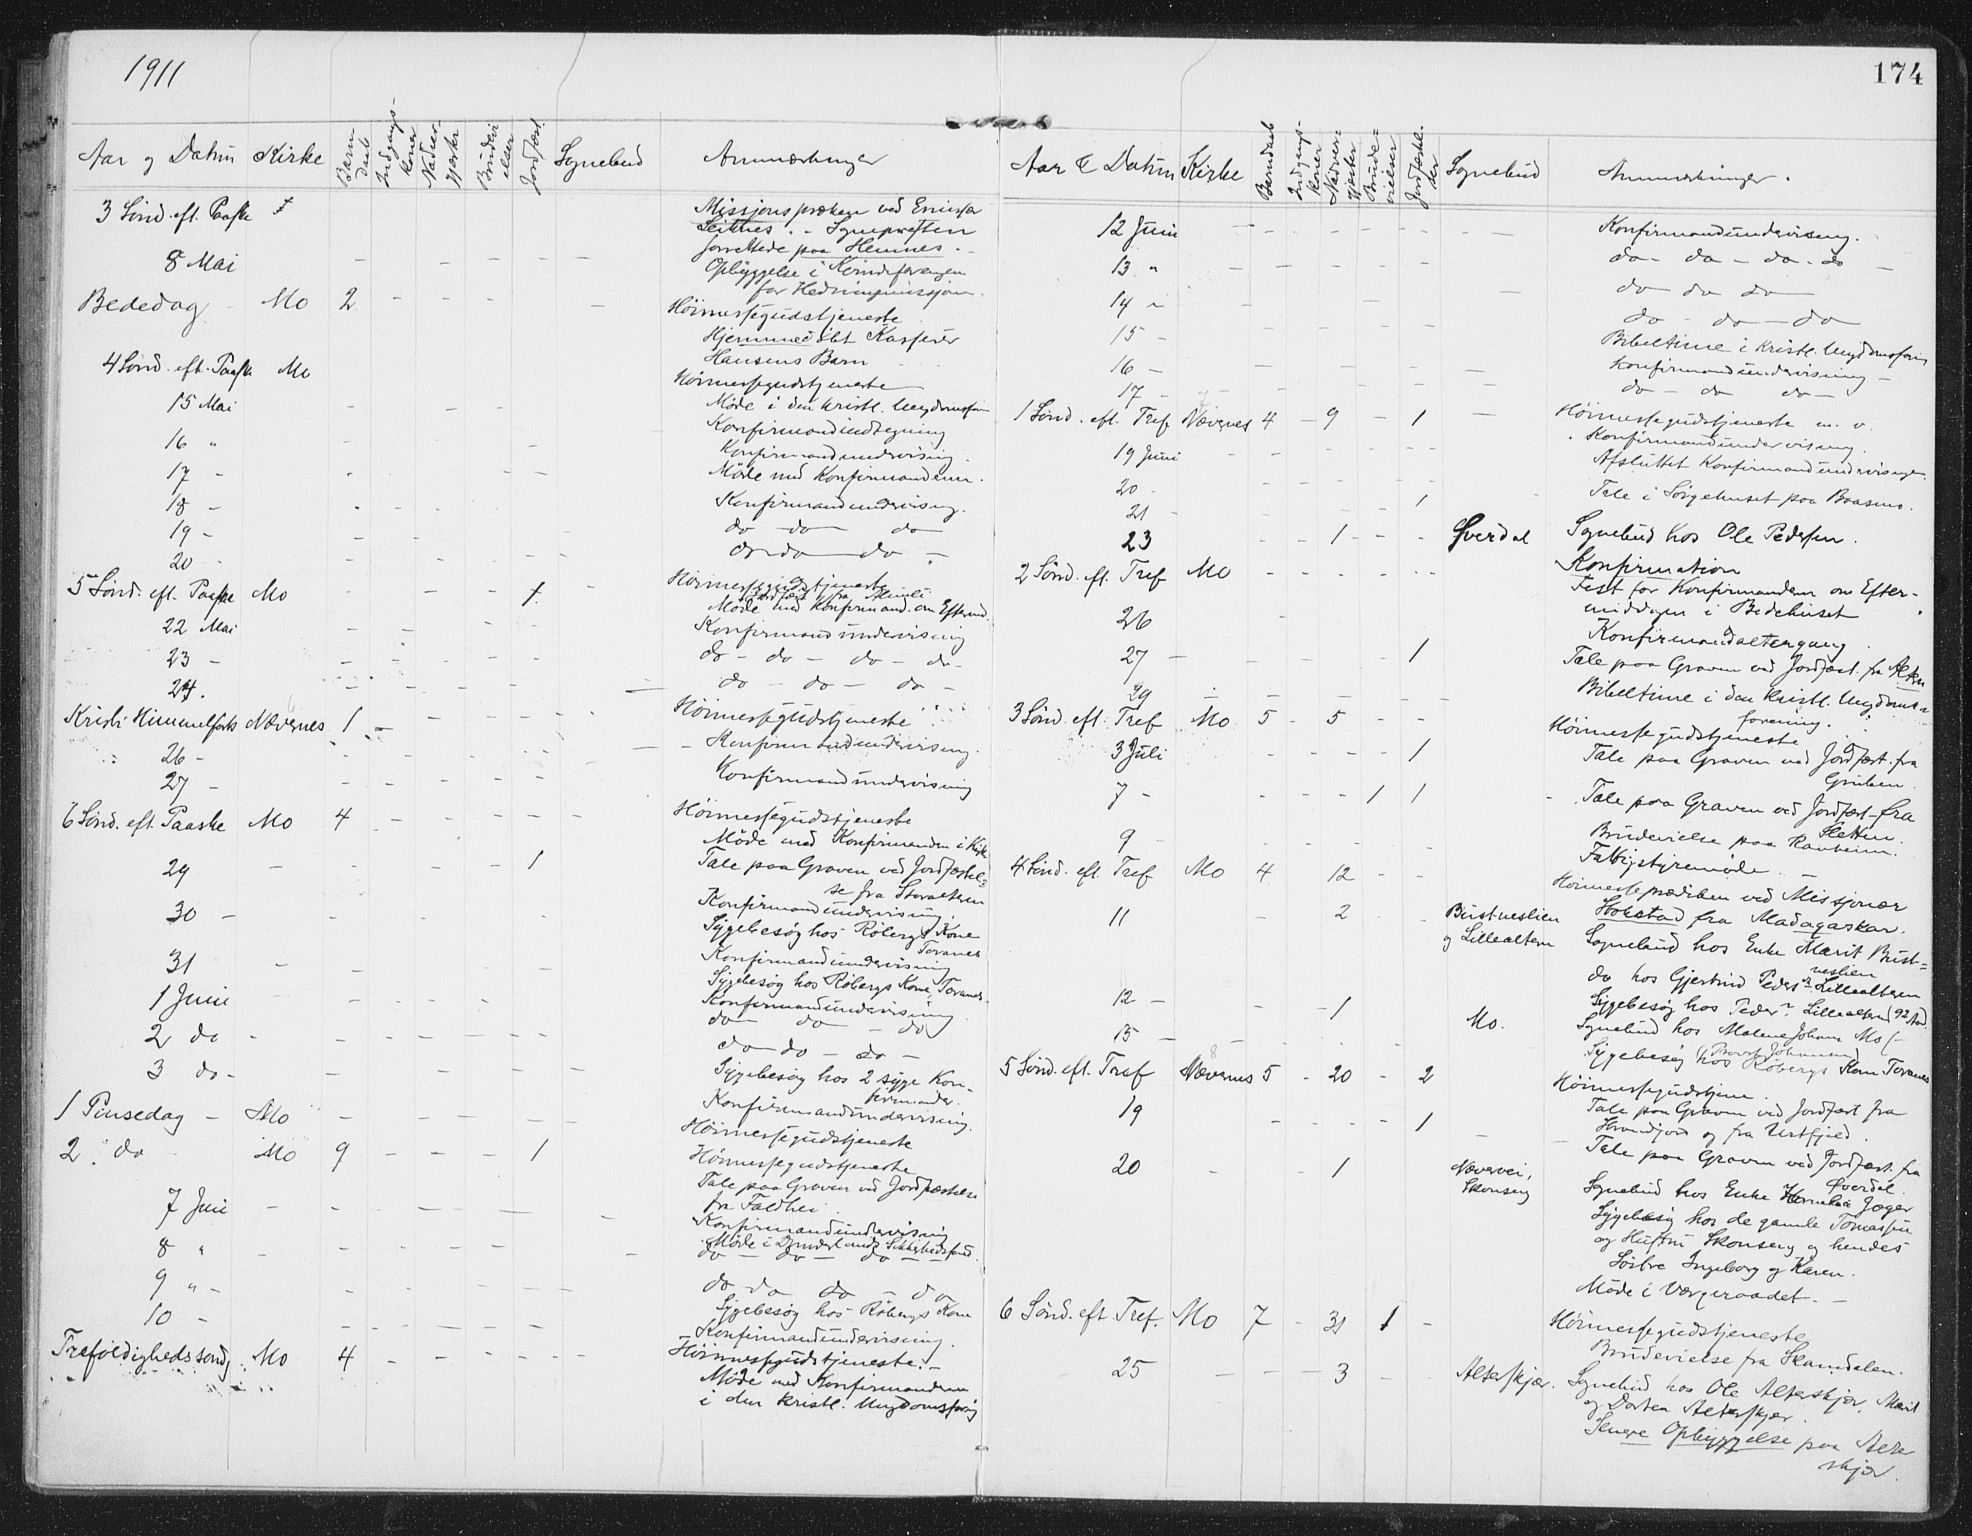 1911
Aar og Datum Kirke Barne daab Indgangs- koner Nadver- gjester Brudevi elser Jordfæst. Sognebud Anmærkninger
3 Sønd. eft. Paaske Missjonspræken ved Emissær
Leitnes. - Sognepresten
forrettede paa Hemnes. -
8 Mai Opbyggelse i Kvindeforeningen
for Hedningemissjon.
Bededag Mo 2 Høimessegudstjeneste
Hjemmedøbt Kasserer
Hansens Barn
4 Sønd. eft. Paaske Mo Høimessegudstjeneste
15 Mai Møde i den kristl. Ungdomsfor
16 " Konfirmandindtegning
Konfirmandundervisning.
17 - Møde med Konfirmanderne.
18 - Konfirmandundervisning.
19 - do - do - do
20 - do - do - do -
5 Sønd. eft. Paaske Mo 1. Høimessegudstjeneste
Møde med Konfirmand. om Efterm.
22 Mai Konfirmandundervisning
23 - do - do - do - do -
24. do - do - do -
Kristi Himmelfarts Nævernes 1 Høimessegudstjeneste
26 - Konfirmandundervisning.
27 - Konfirmandundervisning
6 Sønd. eft. Paaske Mo 4 Høimessegudstjeneste
Møde med Konfirmanden i Kirk
29 1 Tale paa Graven ved Jordfæstel=
se fra Storalteren
30 - Konfirmandundervisning.
Sygebesøg hos Røbergs Kone
Toranes
31 Konfirmandundervisning
Sygebesøg hos Røbergs Kone, Toranes.
1 Juni Konfirmandundervisning.
do - do - do
2 do - do - do - do -
3 do - Sygebesøg hos 2 syge Kon-
firmander.
Konfirmandundervisning.
1 Pinsedag - Mo Høimessegudstjeneste
2. do Mo 9 1 Høimessegudstjeneste
Tale paa Graven ved Jordfæstelse
fra Faldhei.
7 Juni Konfirmandundervisning
Møde i
8 " do - do - do -
9 " - do do do - do
10 - Sygebesøg hos Røbergs Kone
Konfirmandundervisning.
Trefoldighedssond. Mo 4 Høimessegudstjeneste. -
Møde med Konfirmanderne
i den kristl. Ungdomsforng
174
Aar & Datum Kirke Barnedaab Indgangs- koner Nadver- gjester Brude= vielser Jordfæstel- ser Sognebud Anmerkninger.
12 Juni Konfirmandundervisning.
13 " do - do - do - do
14 " do do do
15 - do - do - do
Bibeltime i kristl. Ungdomsforen
16 - Konfirmandundervisning -
17 - do - do do -
1 Sønd. eft. Tref Nævernes 4 9 1 Høimessegudstjeneste m. v.
19 Juni Konfirmandundervisning.
20 - Afsluttet Konfirmandundervisningen
21 - 1 Tale i Sørgehuset paa Baasmo.
23 1 Øverdal Sognebud hos Ole Pedersen.
2 Sønd. eft. Tref Mo Konfirmation
Fest for Konfirmanden om Efter-
middagen i Bedehuset
26 Konfirmandaltergang.
27 - 1 Tale paa Graven ved Jordfæst. fra Alteren
29 Bibeltime i den kristl. Ungdoms=
forening.
3 Sønd. eft. Tref Mo 5 5 Høimessegudstjeneste
3 Juli 1 Tale paa Graven ved Jordfæst. fra
Gruben.
7 - 1 1 Tale paa Graven ved Jordfæst - fra
Sletten.
Brudevielse paa Ranheim.
9 - Fattigstyremøde. -
4 Sønd. eft. Tref Mo 4 12 Høimesseprædiken ved Missjonær
fra Madagaskar.
11 2 Bustneslien
og Lillealteren Sognebud hos Enke Marit Bust=
neslien
do hos Gjertrud Peders Lillealteren
12 - 1 Sygebesøg hos Peder Lillealteren (92 Aar)
Mo. Sognebud hos Malene Johans Mo
15 - Sygebesøg hos Røbergs Kone Toranes
5 Sønd. eft. Tref Nævernes 5 20 2 Høimessegudstjen.
Tale paa Graven ved Jordfæst fra
og fra Urtfjeld.
19 1 Tale paa Graven ved Jordfæst. fra
Øverdal.
20 1 Skonseng Sognebud hos Enke Jæger
Sygebesøg hos de gamle Tomassen
og Hustru Skonseng og hendes
Søstre Ingeborg og Karen.
Møde i Værgeraadet. -
6 Sønd. eft. Tref. Mo 7 31 1 Høimessegudstjeneste
Brudevielse fra Skamdalen.
25 3 Alterskjær. Sognebud hos Ole Alterskjær, Marit
og Dortea Alterskjær.
Senere Opbyggelse paa Alter
skjær.